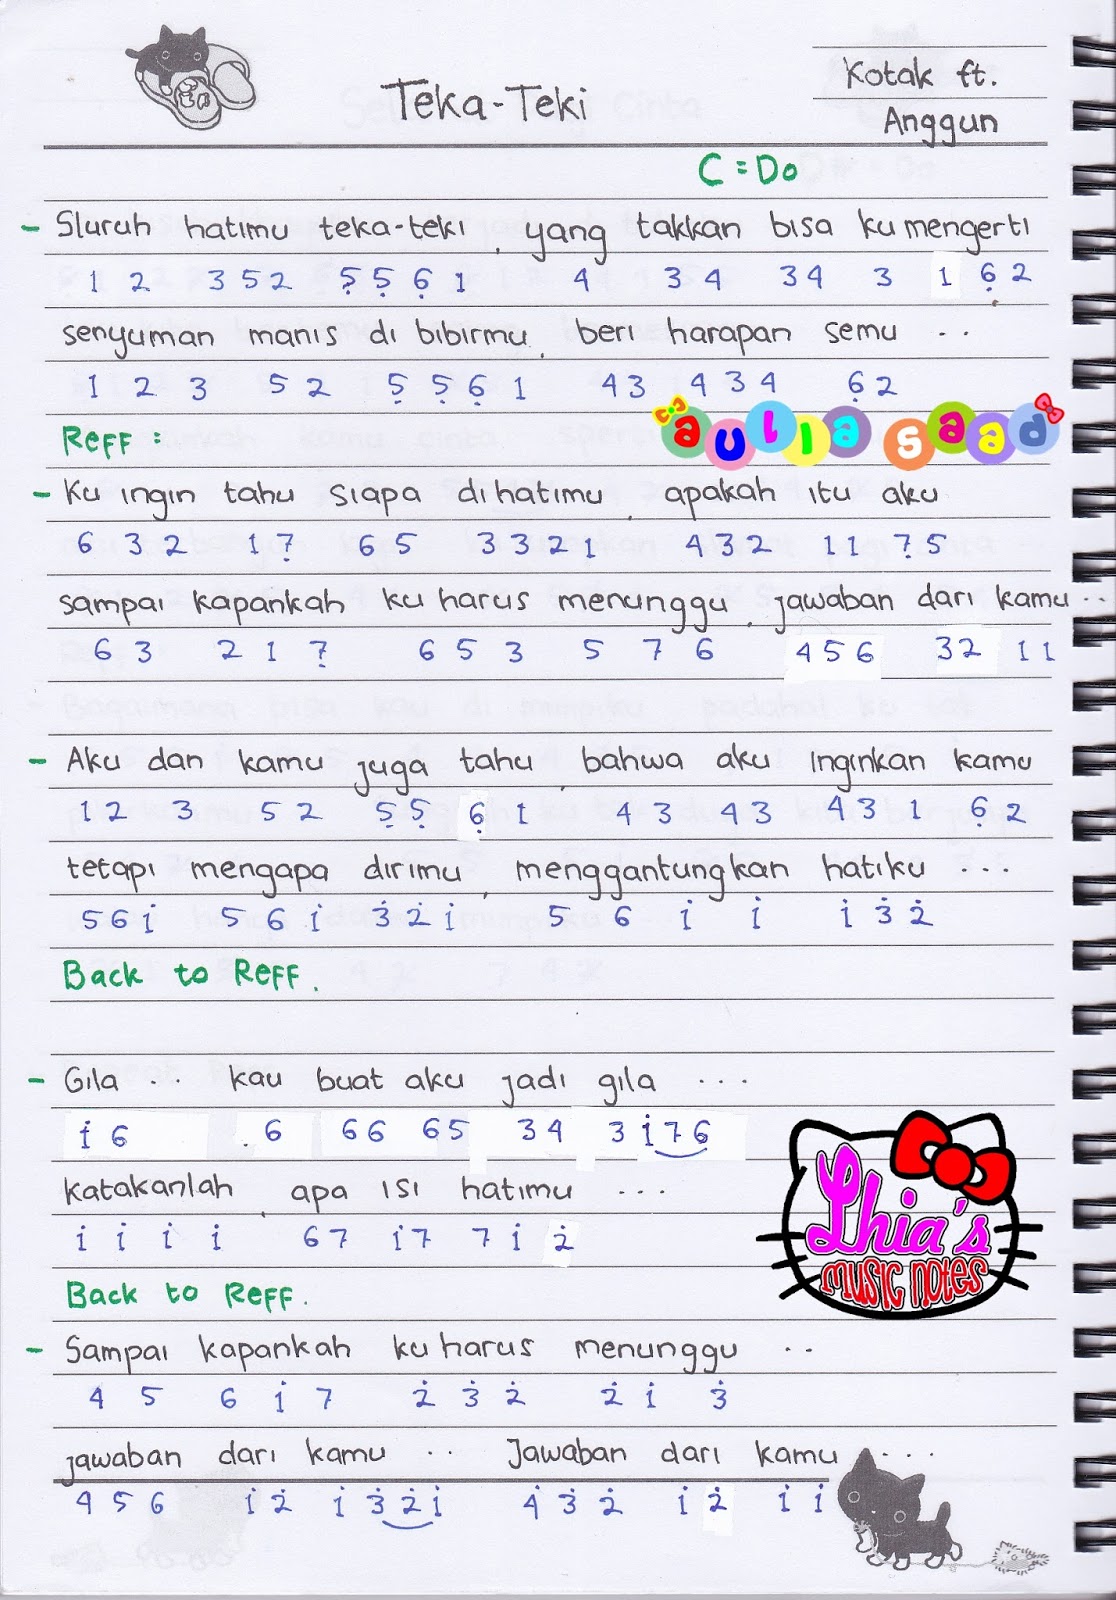 Teka-Teki
Kotak ft.
Anggun
C = Do
- Sluruh hatimu teka-teki, yang takkan bisa ku mengerti
1 2 3 5 2 5̣ 5̣ 6̣ 1 4 3 4 3 4 3 1 6̣ 2
senyuman manis di bibirmu, beri harapan semu ..
1 2 3 5 2 5̣ 5̣ 6̣ 1 4 3 4 3 4 6̣ 2
aulia saad
Reff :
- Ku ingin tahu siapa dihatimu, apakah itu aku
6 3 2 1 7̣ 6 5 3 3 2 1 4 3 2 1 1 7̣ 5
sampai kapankah ku harus menunggu, jawaban dari kamu ..
6 3 2 1 7̣ 6 5 3 5 7 6 4 5 6 3 2 1 1
- Aku dan kamu juga tahu, bahwa aku inginkan kamu
1 2 3 5 2 5̣ 5̣ 6̣ 1 4 3 4 3 4 3 1 6̣ 2
tetapi mengapa dirimu, menggantungkan hatiku ...
5 6 i 5 6 i 3̇ 2̇ i 5 6 i i i 3̇ 2̇
Back to Reff.
- Gila .. kau buat aku jadi gila ...
i 6 . 6 6 6 6 5 3 4 3 i 7 6
katakanlah, apa isi hatimu ...
i i i i 6 7 i 7 7 i 2̇
Lhia's
music notes
Back to Reff.
- Sampai kapankah ku harus menunggu ..
4 5 6 i 7 2̇ 3̇ 2̇ 2̇ i 3̇
jawaban dari kamu .. Jawaban dari kamu ...
4 5 6 i 2̇ i 3̇ 2̇ i 4̇ 3̇ 2̇ i 2̇ i i